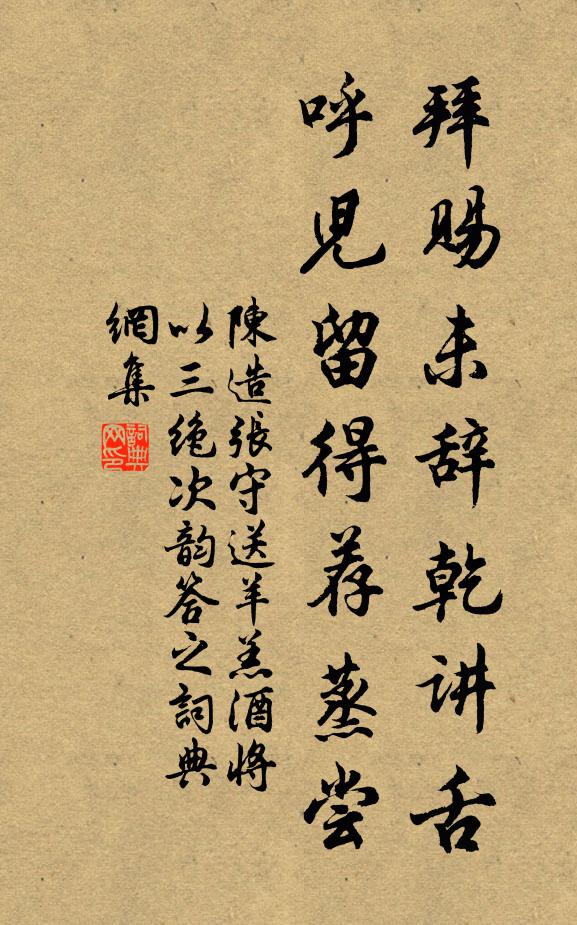 拜赐未辞乾讲舌
呼児留得荐蒸尝
陳造張守送羊羔酒将
以三绝次韵答之詞典
網集
詞典网印